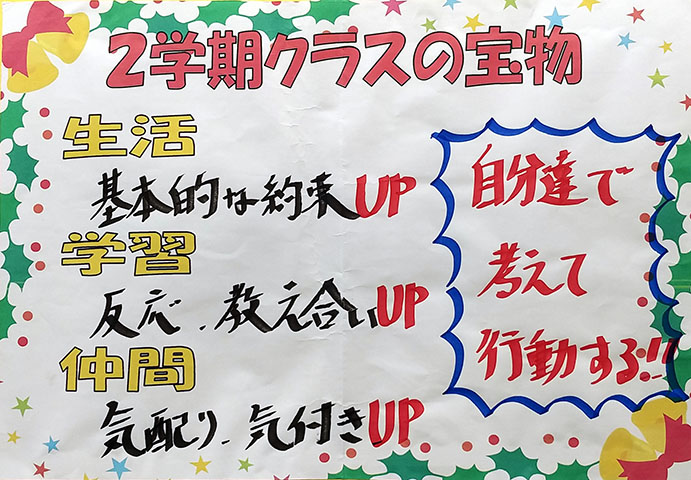 2学期クラスの宝物
生活
基本的な約束UP
学習
反応、教え合いUP
仲間
気配り、気付きUP
自分達で
考えて
行動する!!